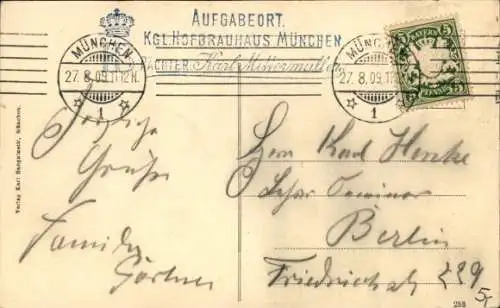 AUFGABEORT.
KGL. HOFBRÄUHAUS MÜNCHEN
PÄCHTER: Karl Mittermüller
MÜNCHEN
27. 8. 09. 11-12 N.
1
MÜNCHEN
27. 8. 09. 11
1
BAYERN
5 5
Herzliche
Grüße
Familie
Gärtner
Herrn Karl Henke
Berlin
Friedrichstr 229
Verlag Karl
München.
253
5,-